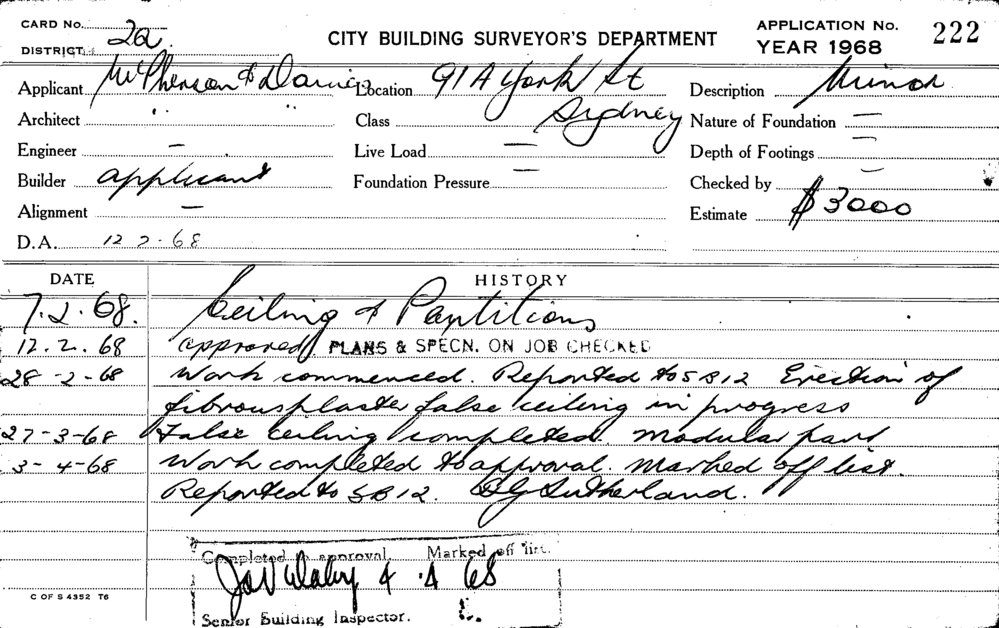 CARD No. 2a.
DISTRICT
CITY BUILDING SURVEYOR'S DEPARTMENT
APPLICATION No. 222
YEAR 1968
Applicant McPherson & Davies
Location 91A York St
Sydney
Description Minor
Architect " "
Class
Nature of Foundation —
Engineer —
Live Load —
Depth of Footings —
Builder applicant
Foundation Pressure —
Checked by
Alignment —
Estimate $3000
D.A. 12 2. 68
DATE HISTORY
7.2.68. Ceiling & Partitions
12.2.68 approved PLANS & SPECN. ON JOB CHECKED
28-2-68 Work commenced. Reported to SB12 Erection of
fibrousplaster false ceiling in progress
27-3-68 False ceiling completed. Modular part
3-4-68 Work completed to approval. Marked off list.
Reported to SB12. Sutherland.
Completed to approval. Marked off list.
4 .4 68
Senior Building Inspector.
C OF S 4352 T6